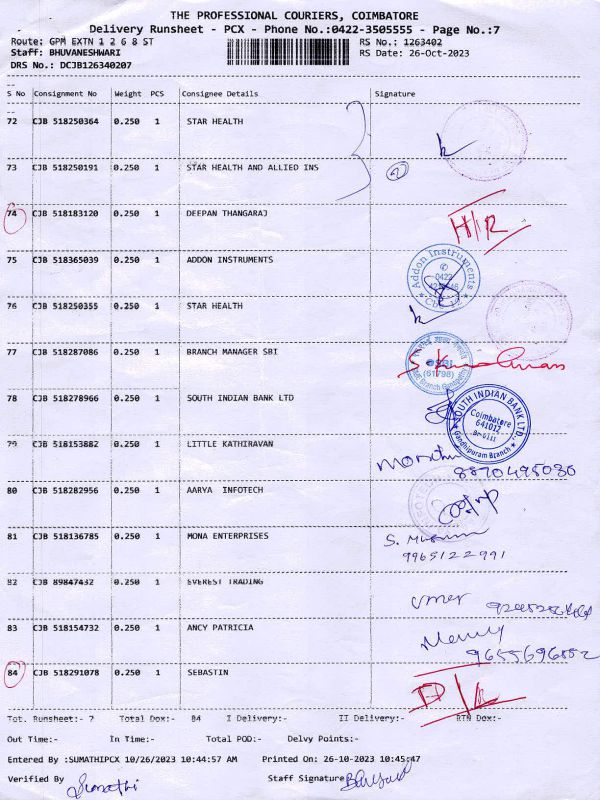 THE PROFESSIONAL COURIERS, COIMBATORE
Delivery Runsheet - PCX - Phone No.:0422-3505555 - Page No.:7
Route: GPM EXTN 1 2 6 8 ST RS No.: 1263402
Staff: BHUVANESHWARI RS Date: 26-Oct-2023
DRS No.: DCJB126340207
S No Consignment No Weight PCS Consignee Details Signature
72 CJB 518250364 0.250 1 STAR HEALTH
73 CJB 518250191 0.250 1 STAR HEALTH AND ALLIED INS 2
74 CJB 518183120 0.250 1 DEEPAN THANGARAJ H/R
75 CJB 518365039 0.250 1 ADDON INSTRUMENTS Addon Instruments
76 CJB 518250355 0.250 1 STAR HEALTH
77 CJB 518287086 0.250 1 BRANCH MANAGER SBI
78 CJB 518278966 0.250 1 SOUTH INDIAN BANK LTD SOUTH INDIAN BANK LTD. Coimbatore 641012 Gandhipuram Branch
79 CJB 518153882 0.250 1 LITTLE KATHIRAVAN
8870498030
80 CJB 518282956 0.250 1 AARYA INFOTECH
81 CJB 518136785 0.250 1 MONA ENTERPRISES
9965122991
82 CJB 89847432 0.250 1 EVEREST TRADING umer
83 CJB 518154732 0.250 1 ANCY PATRICIA
9655696852
84 CJB 518291078 0.250 1 SEBASTIN
Tot. Runsheet:- 7 Total Dox:- 84 I Delivery:- II Delivery:- RTN Dox:-
Out Time:- In Time:- Total POD:- Delvy Points:-
Entered By :SUMATHIPCX 10/26/2023 10:44:57 AM Printed On: 26-10-2023 10:45:47
Verified By Sumathi Staff Signature